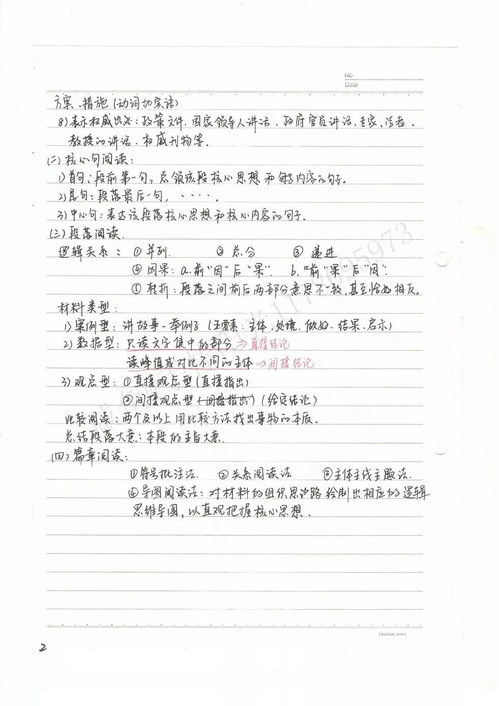 No
Date
方案、措施(动词加宾语)
8)表示权威出处:政策文件、国家领导人讲话、政府官员讲话、专家、学者、
教授的讲话、权威刊物等.
(二)核心句阅读:
1)首句:段前第一句,总领该段核心思想和内容的句子.
2)尾句:段落最后一句,·····.
3)中心句:表达该段落核心思想和核心内容的句子.
(三)段落阅读.
逻辑关系:①并列. ②总分 ③递进
④因果:a.前"因"后"果". b."前"果"后"因".
⑤转折:段落之间前后两部分意思不一致,甚至恰好相反.
材料类型:
1)案例型:讲故事、举例子(五要素:主体、处境、做法、结果、启示)
2)数据型:只读文字集中的部分⇒直接结论
读峰值或对比不同的主体⇒间接结论
3)观点型:①直接观点型(直接指出)
②间接观点型(间接指出)(给定结论)
比较阅读:两个及以上用比较方法找出事物的本质.
总结段落大意:本段的主旨大意.
(四)篇章阅读:
①符号批注法. ②关系阅读法 ③主体主线主题法.
④导图阅读法:对材料的组织思路绘制出相应的逻辑
思维导图,以直观把握核心思想.
2